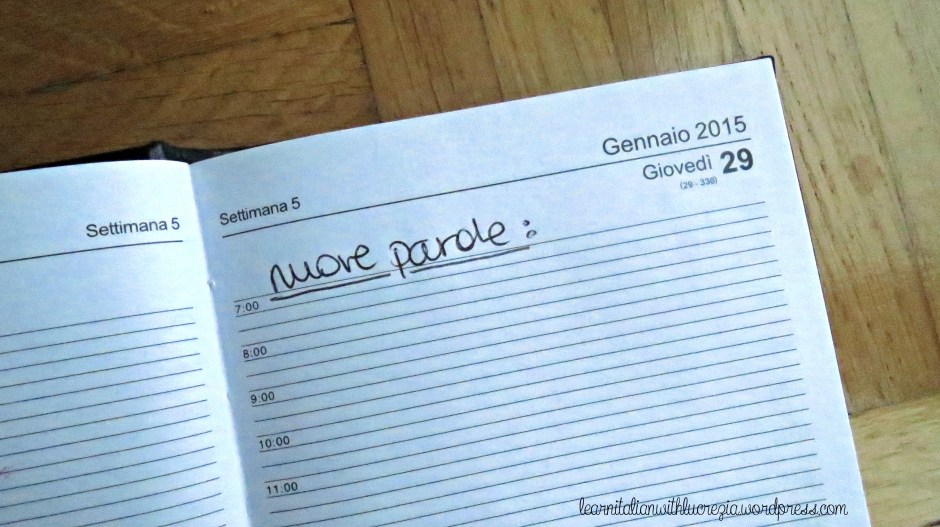 Settimana 5
Gennaio 2015
Giovedì 29
(29 - 336)
Settimana 5
nuove parole:
7:00
8:00
9:00
10:00
11:00
learnitalianwithlucrezia.wordpress.com